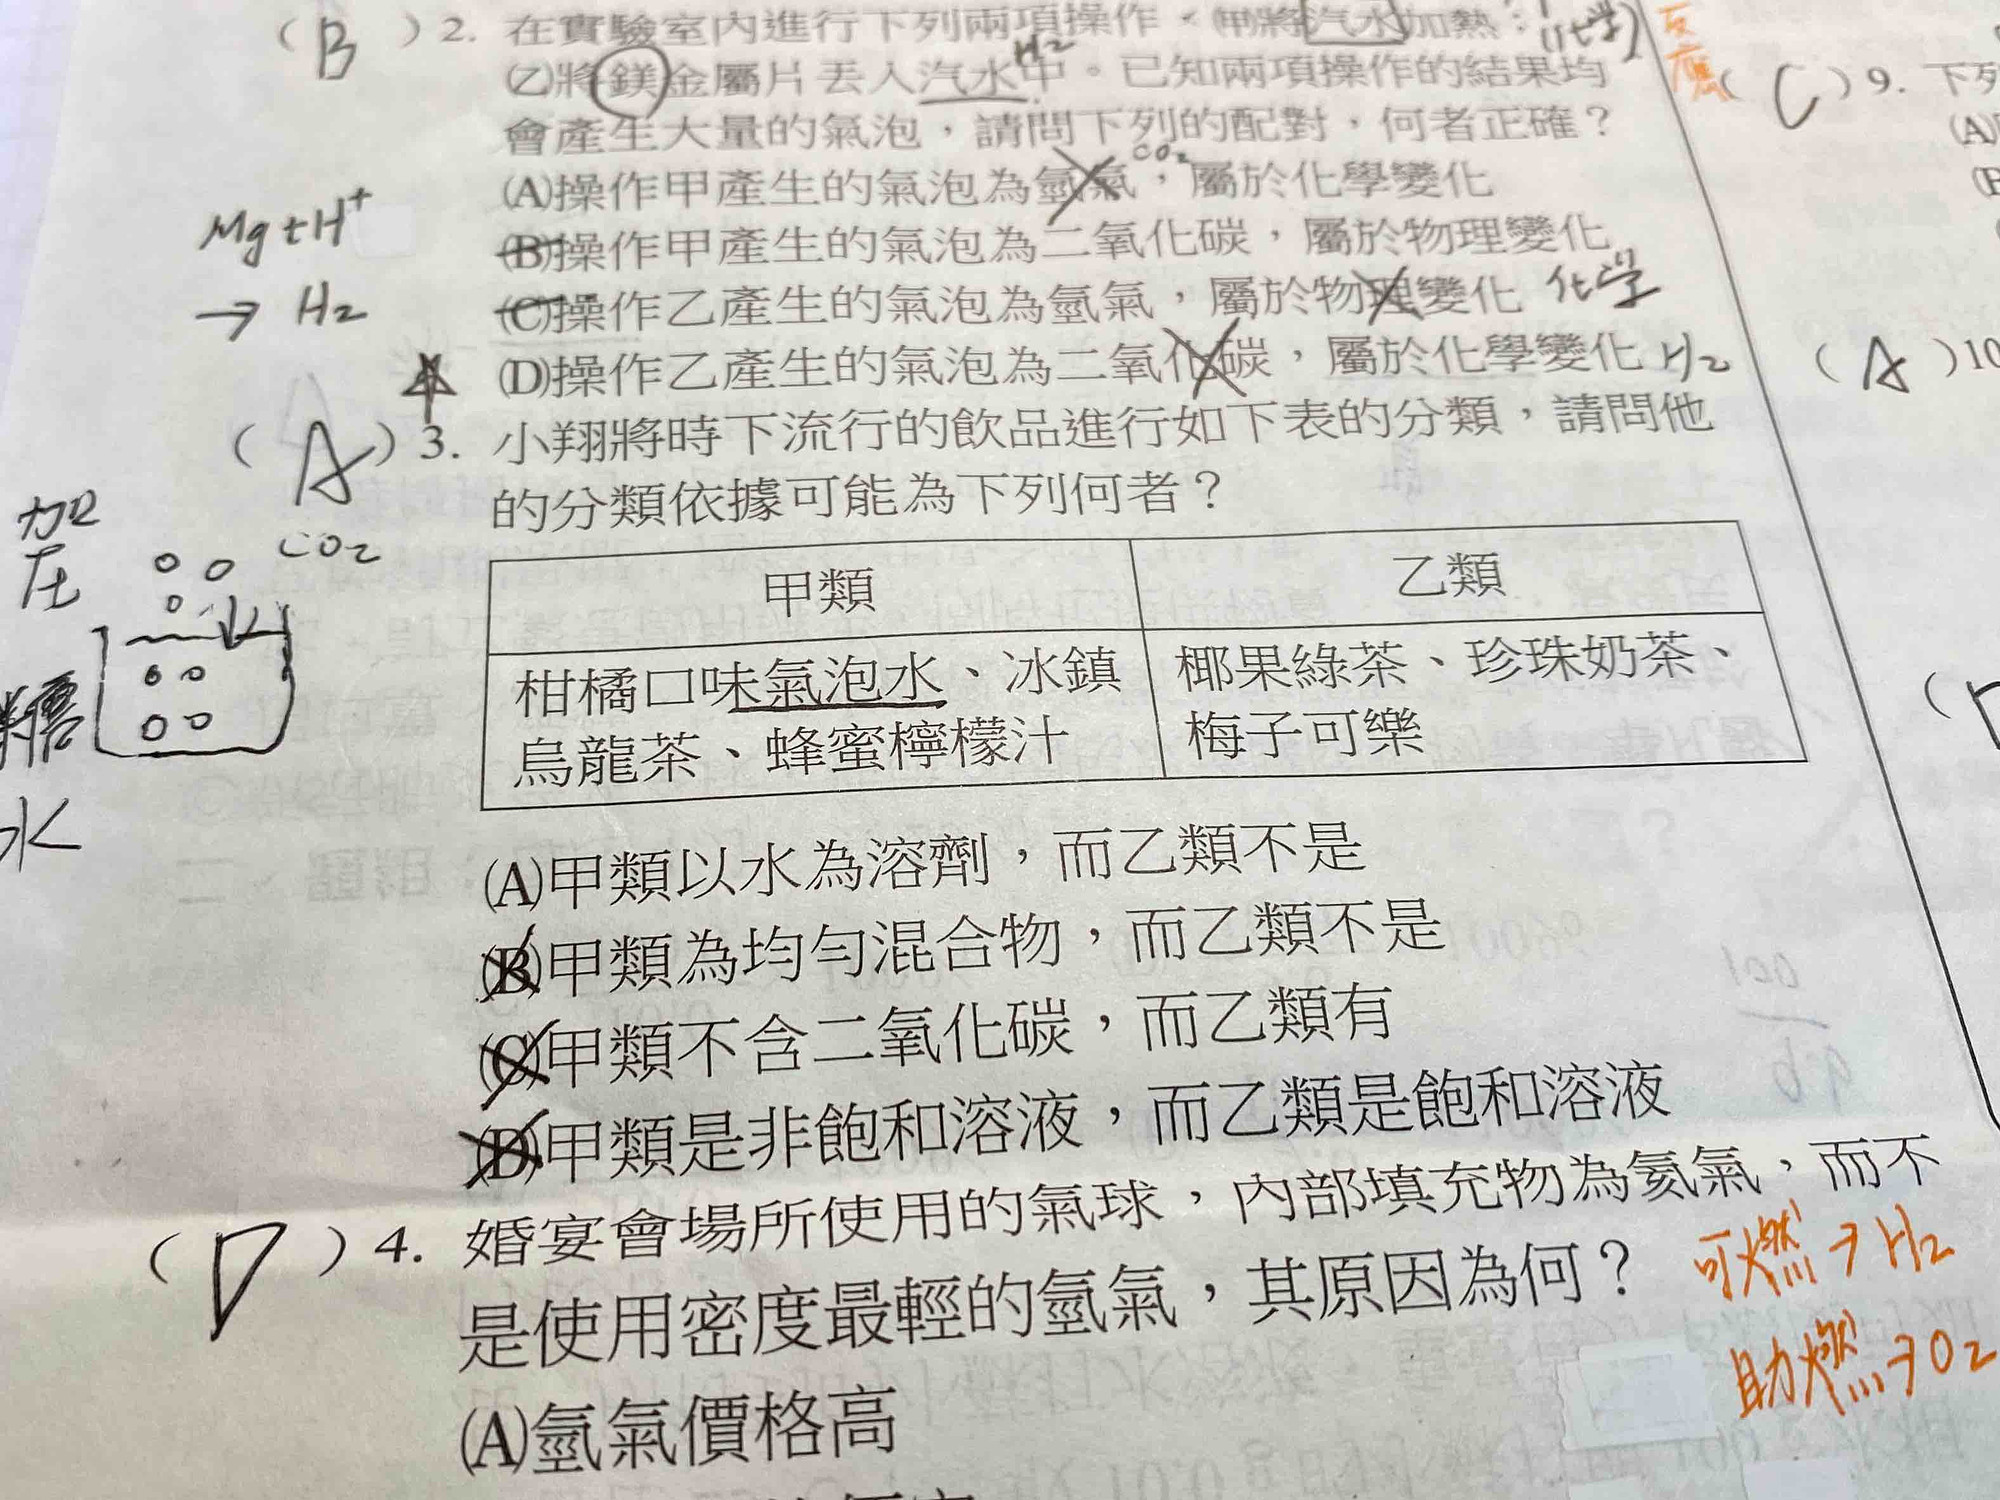 (B)2. 在實驗室內進行下列兩項操作，㈙將汽水加熱；
(化学)
反應
H₂
㈚將鎂金屬片丟入汽水中。已知兩項操作的結果均
會產生大量的氣泡，請問下列的配對，何者正確？
CO₂
(A)操作甲產生的氣泡為氫氣，屬於化學變化
(B)操作甲產生的氣泡為二氧化碳，屬於物理變化
(C)操作乙產生的氣泡為氫氣，屬於物理變化 化学
(D)操作乙產生的氣泡為二氧化碳，屬於化學變化 H₂
Mg+H⁺
→ H₂
(A)3. 小翔將時下流行的飲品進行如下表的分類，請問他
的分類依據可能為下列何者？
CO₂
加
糖
水
甲類 乙類
柑橘口味氣泡水、冰鎮 椰果綠茶、珍珠奶茶、
烏龍茶、蜂蜜檸檬汁 梅子可樂
(A)甲類以水為溶劑，而乙類不是
(B)甲類為均勻混合物，而乙類不是
(C)甲類不含二氧化碳，而乙類有
(D)甲類是非飽和溶液，而乙類是飽和溶液
(D)4. 婚宴會場所使用的氣球，內部填充物為氦氣，而不
是使用密度最輕的氫氣，其原因為何？
可燃→H₂
助燃→O₂
(A)氫氣價格高
(C)9. 下列
(A)
(B
(A)10